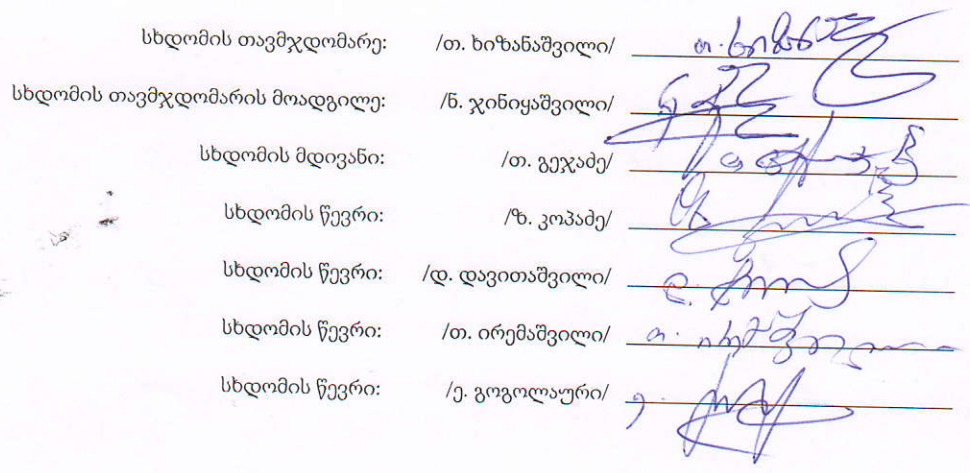 სხდომის თავმჯდომარე: /თ. ხიზანაშვილი/
სხდომის თავმჯდომარის მოადგილე: /ნ. ჯინიყაშვილი/
სხდომის მდივანი: /თ. გეჯაძე/
სხდომის წევრი: /ზ. კოპაძე/
სხდომის წევრი: /დ. დავითაშვილი/
სხდომის წევრი: /თ. ირემაშვილი/
სხდომის წევრი: /ე. გოგოლაური/